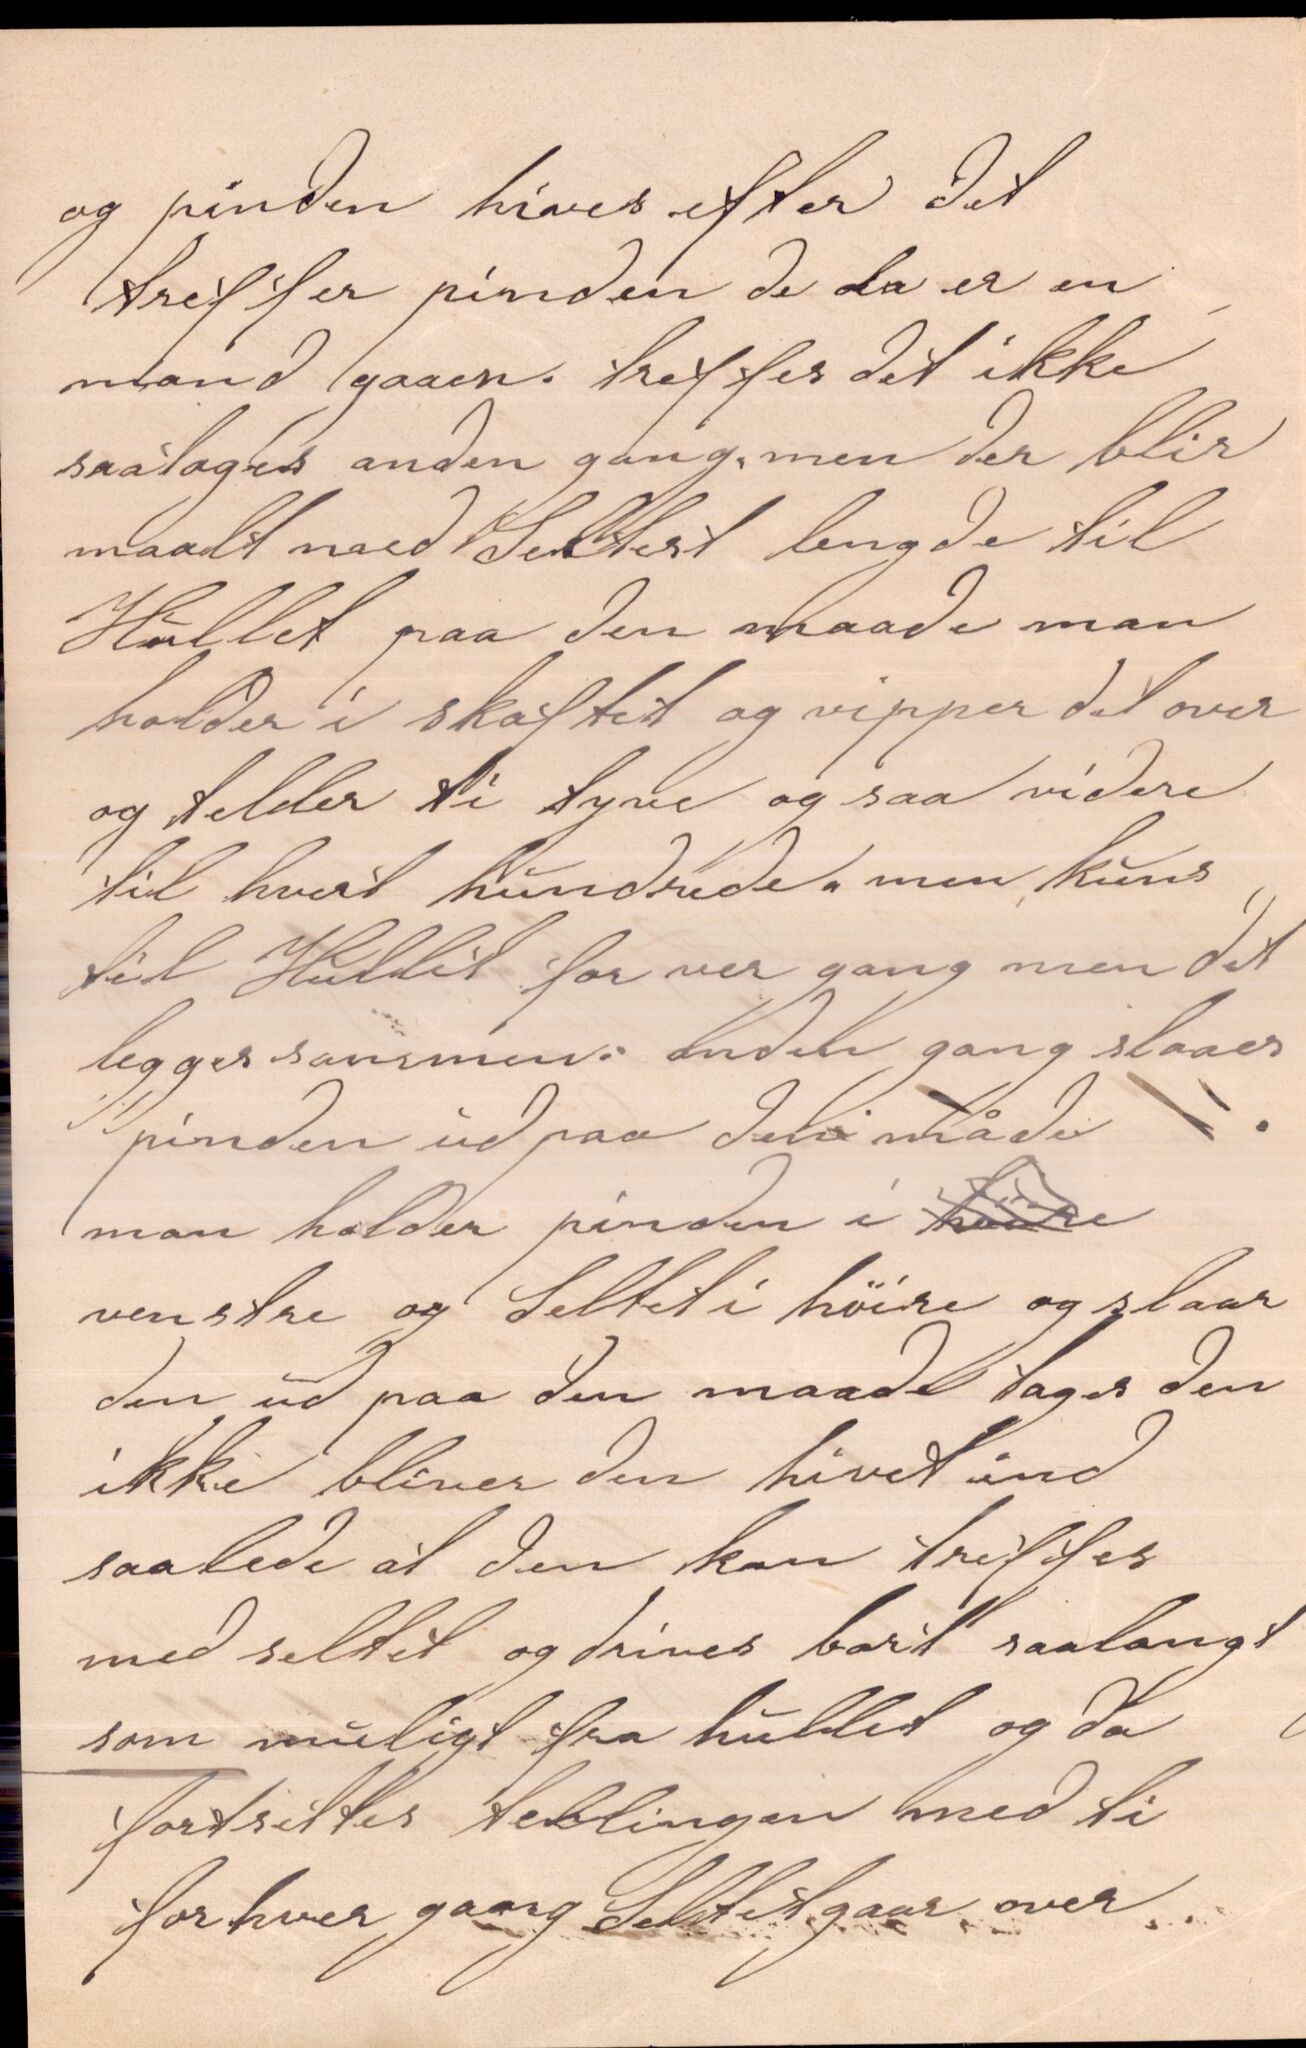 og pinden hives efter det
treffer pinden de da er en
mand gaaen. treffes det ikke
saa tages anden gang. men der blir
maalt med Seltest lengde til
Hullet paa den maade man
holder i skaftet og vipper det over
og telder ti tyve og saa videre
til hvert hundrede. men kuns
til Hullet for ver gang men det
legges sammen. anden gang slaaes
pinden ud paa den måde
man holder pinden i høire
venstre og Seltet i höire og slaar
den ud paa den maade tages den
ikke bliver den hivet ind
saalede at den kan treffes
med seltet og drives bort saalangt
som muligt fra hullet og da
fortsettes tellingen med ti
for hver gang Seltet gaar over